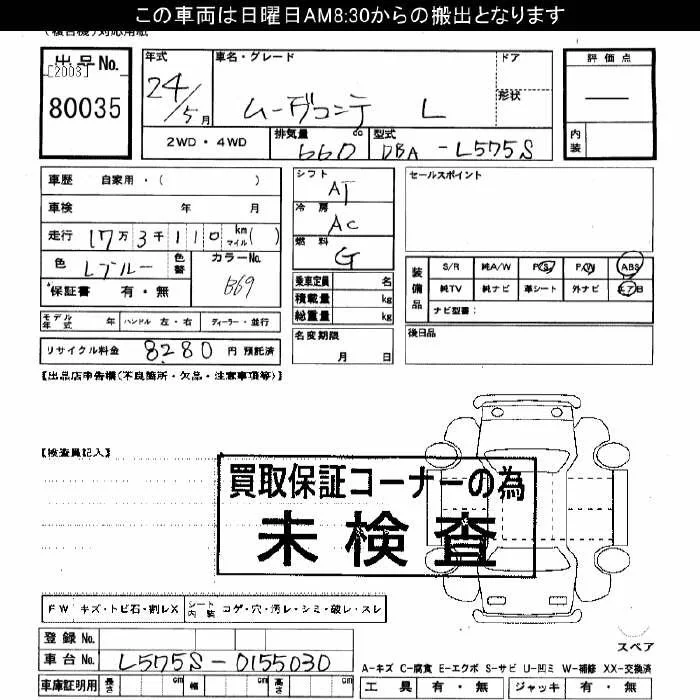 この車両は日曜日AM8:30からの搬出となります
出品No.
[2003]
80035
年式
24/5月
車名・グレード
ムーヴコンテ L
ドア
形状
2WD・4WD
排気量 cc
660
型式
DBA-L575S
評価点
内装
車歴 自家用・( )
車検 年 月
走行 17万3千110 km マイル( )
色 Lブルー
色替
カラーNo.
B69
保証書 有・無
シフト
AT
冷房
AC
燃料
G
乗車定員 名
積載量 kg
総重量 kg
セールスポイント
装備品
S/R 純A/W P/S P/W ABS
純TV 純ナビ 革シート 外ナビ エアB
ナビ型番:
モデル年式 年 ハンドル 左・右 ディーラー・並行
リサイクル料金 8280 円 預託済
名変期限
月 日
後日品
【出品店申告欄(不良箇所・欠品・注意事項等)】
【検査員記入】
買取保証コーナーの為
未検査
FW キズ・トビ石・割レX シート内装 コゲ・穴・汚レ・シミ・破レ・スレ
登録No.
車台No. L575S-0155030
車庫証明用 長さ cm 幅 cm 高さ cm
スペア
A-キズ C-腐食 E-エクボ S-サビ U-凹ミ W-補修 XX-交換済
工具 有・無 ジャッキ 有・無